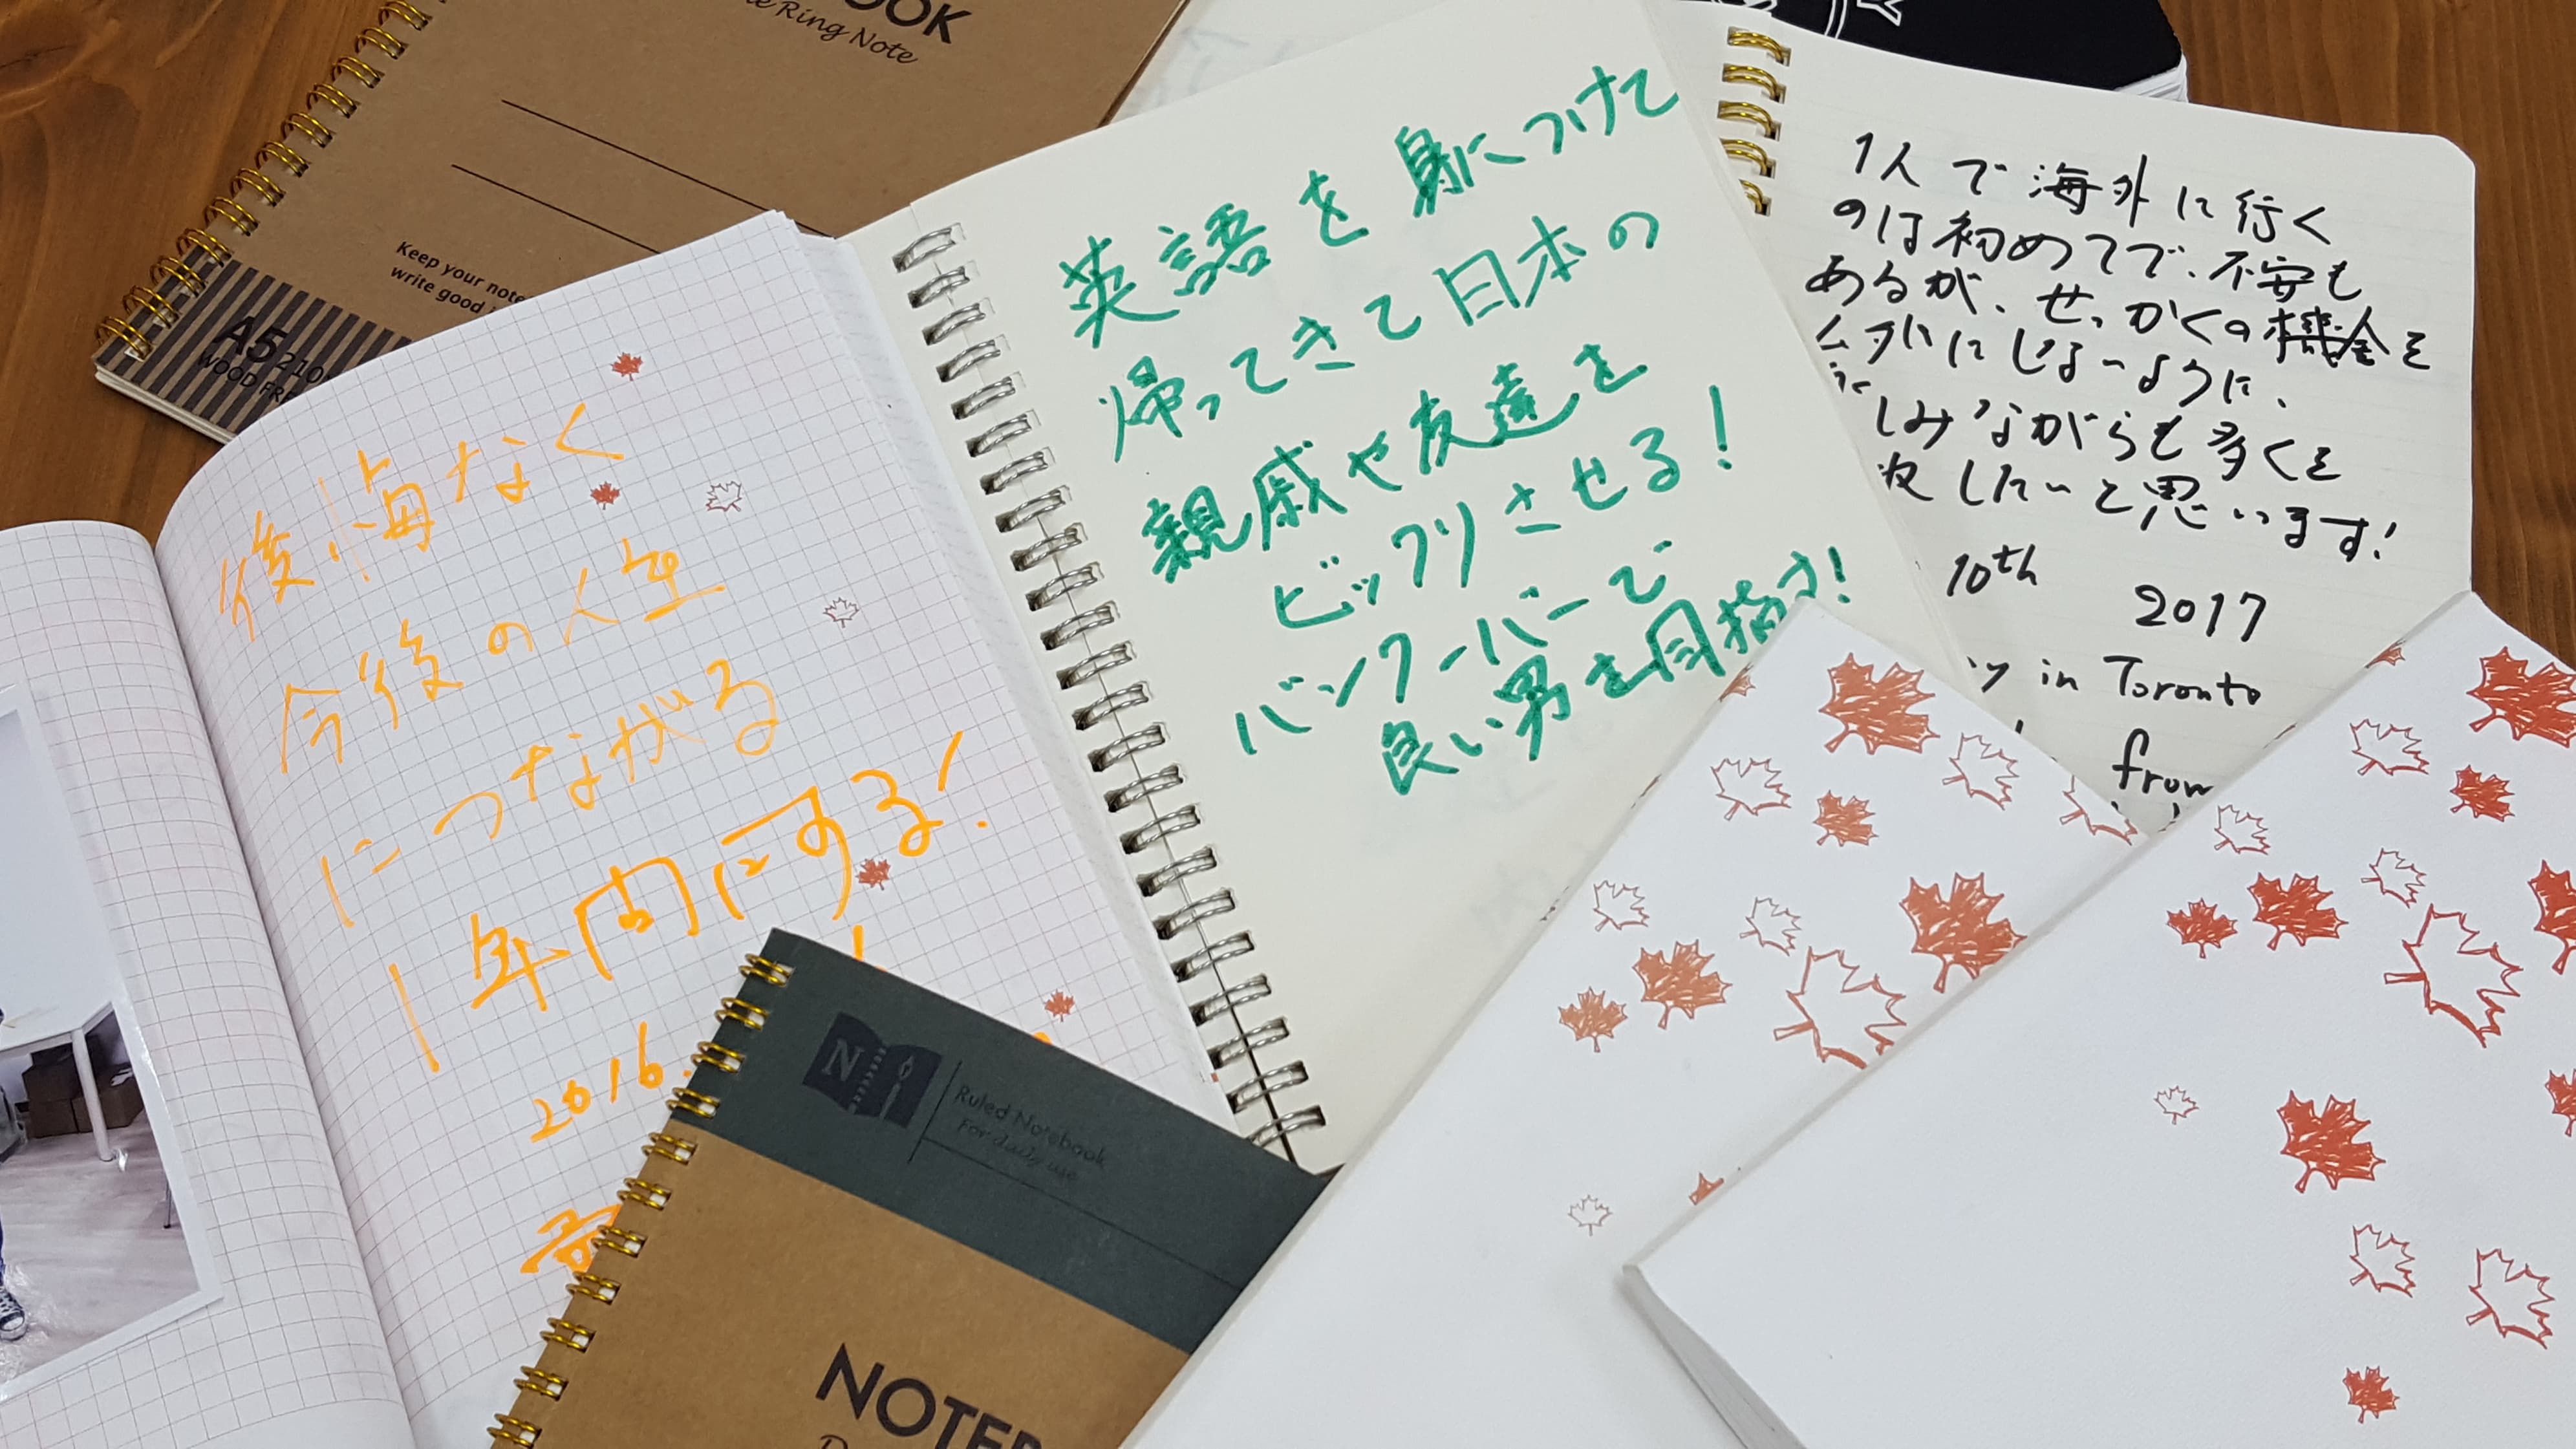 OOK
Ring Note
Keep your note
write good
A5 210
WOOD FRE
後悔なく
今後の人生
につながる
1年間にする!
2016.
英語を身につけて
帰ってきて日本の
親戚や友達を
ビックリさせる!
バンクーバーで
良い男を目指す!
1人で海外に行く
のは初めてで、不安も
あるが、せっかくの機会を
ムダにしないように、
しみながらも多くを
したいと思います!
10th 2017
in Toronto
from
N
Ruled Notebook
For daily use
NOTEB